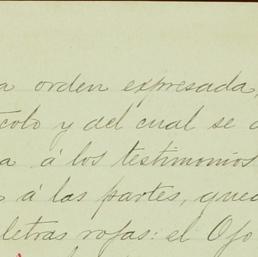 a orden expresada,
colo y del cual se
a á los testimonios
á las partes, que
letras rojas: el Ojo